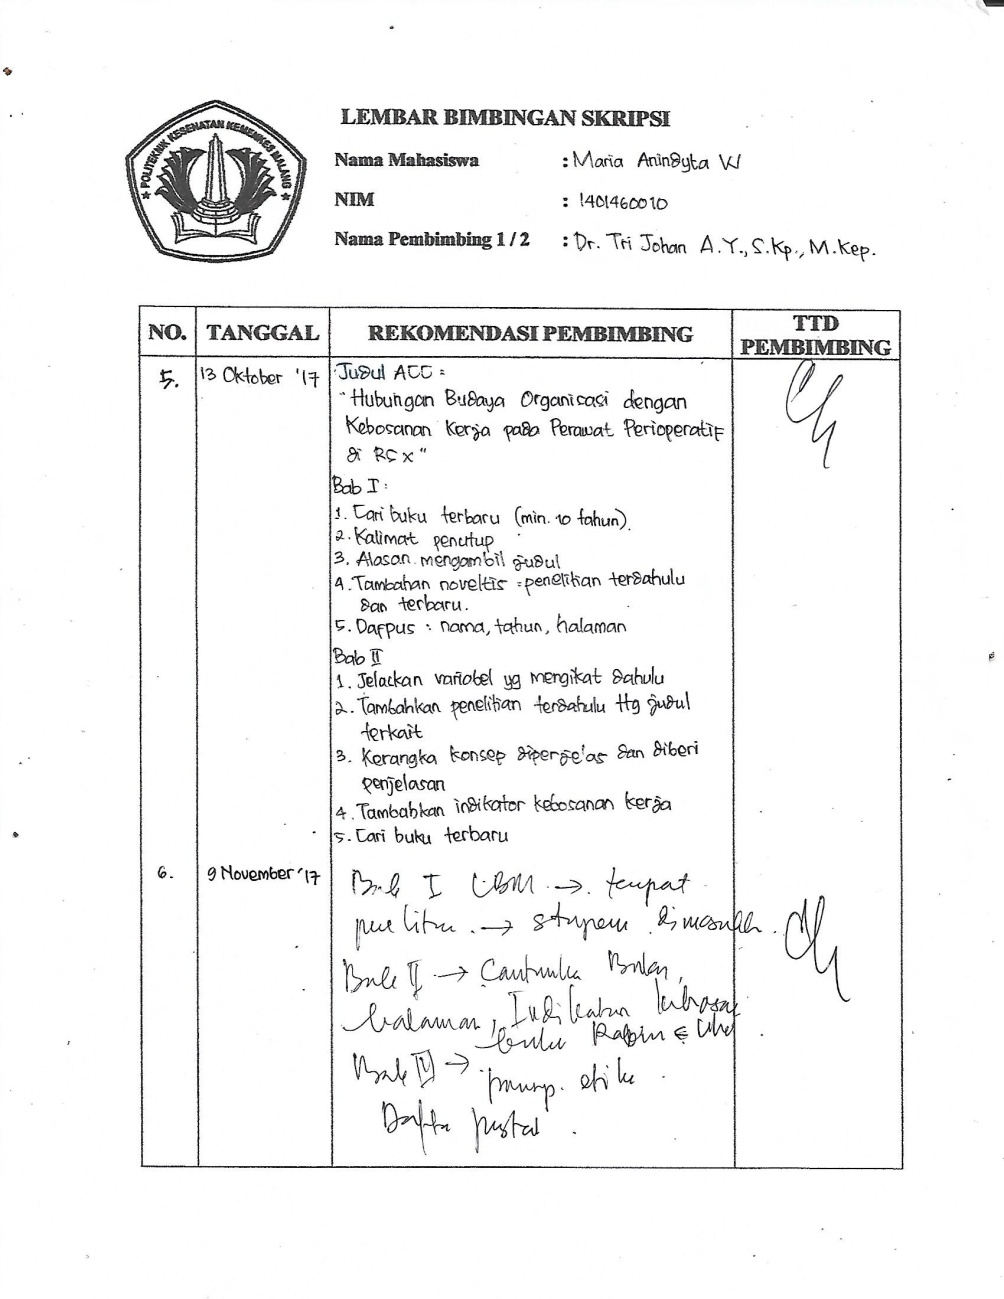 POLITEKNIK KESEHATAN KEMENKES MALANG
LEMBAR BIMBINGAN SKRIPSI
Nama Mahasiswa : Maria Anindyta W
NIM : 1401460010
Nama Pembimbing 1 / 2 : Dr. Tri Johan A.Y., S.Kp., M.Kep.
NO. TANGGAL REKOMENDASI PEMBIMBING TTD PEMBIMBING
5. 13 Oktober '17 Judul ACC :
"Hubungan Budaya Organisasi dengan
Kebosanan Kerja pada Perawat Perioperatif
di RS x"
Bab I :
1. Cari buku terbaru (min. 10 tahun).
2. Kalimat penutup
3. Alasan mengambil judul
4. Tambahan noveltis : penelitian terdahulu
dan terbaru.
5. Dafpus : nama, tahun, halaman
Bab II
1. Jelaskan variabel yg mengikat dahulu
2. Tambahkan penelitian terdahulu ttg judul
terkait
3. Kerangka konsep diperjelas dan diberi
penjelasan
4. Tambahkan indikator kebosanan kerja
5. Cari buku terbaru
6. 9 November '17 Bab I → tempat
→ stupen dimasukkan.
Bab II →
halaman, Indikator
buku
Bab IV → prinsip etika.
Daftar pustaka.